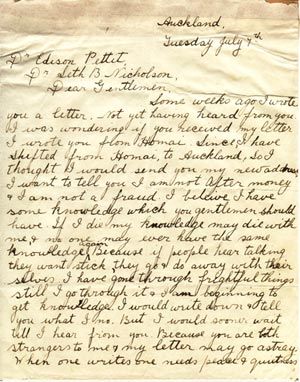 Auckland
Tuesday July 7th
Dr Edison Pettit
Dr Seth B. Nicholson,
Dear Gentlemen,
Some weeks ago I wrote
you a letter. Not yet having heard from you
I was wondering if you received my letter
I wrote you from Homai. Since I have
shifted from Homai to Auckland, so I
thought I would send you my new address
I want to tell you I am not after money
& I am not a fraud. I beleive I have
some knowledge which you gentlemen should
have. If I die my knowledge may die with
me & no one may ever have the same
knowledge again. Because if people hear talking
they want stick they go & do away with their
selves. I have gone through frightful things
still I go through it & I am beginning to
get knowledge. I would write down & tell
you what I no. But I would sooner wait
till I hear from you Because you are both
strangers to me & my letter may go astray.
When one writes one needs peace & quietness